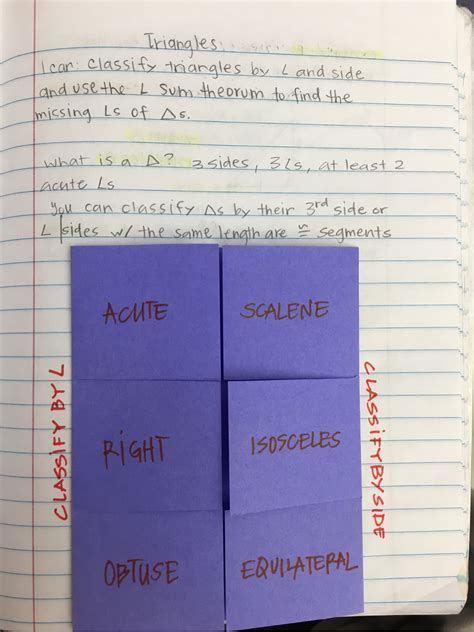 Triangles
I can: classify triangles by ∠ and side
and use the ∠ sum theorum to find the
missing ∠s of △s.
What is a △? 3 sides, 3 ∠s, at least 2
acute ∠s
You can classify △s by their 3rd side or
∠ | sides w/ the same length are ≅ segments
ACUTE
SCALENE
RIGHT
ISOSCELES
OBTUSE
EQUILATERAL
CLASSIFY BY ∠
CLASSIFY BY SIDE